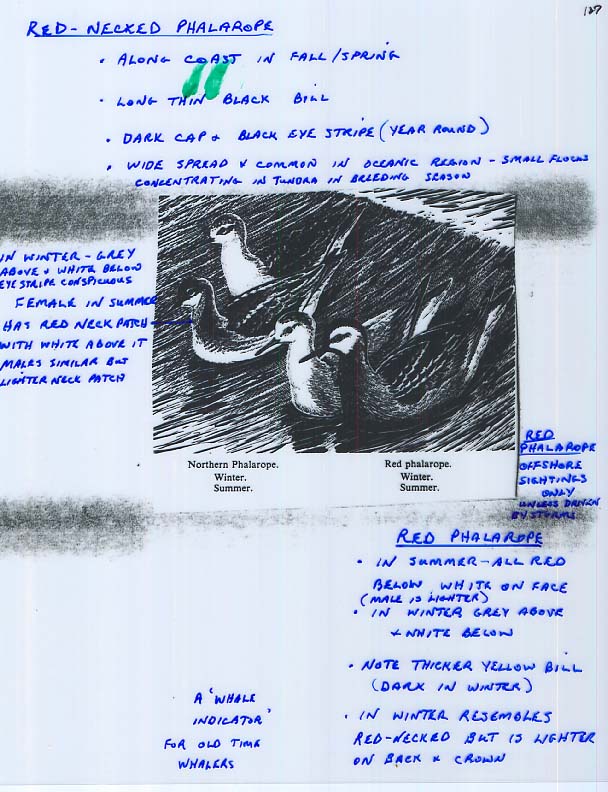 127
RED-NECKED PHALAROPE
• ALONG COAST IN FALL/SPRING
• LONG THIN BLACK BILL
• DARK CAP & BLACK EYE STRIPE (YEAR ROUND)
• WIDE SPREAD & COMMON IN OCEANIC REGION - SMALL FLOCKS
CONCENTRATING IN TUNDRA IN BREEDING SEASON
IN WINTER - GREY
ABOVE & WHITE BELOW
EYE STRIPE CONSPICUOUS
FEMALE IN SUMMER
HAS RED NECK PATCH
WITH WHITE ABOVE IT
MALES SIMILAR BUT
LIGHTER NECK PATCH
Northern Phalarope.
Winter.
Summer.
Red phalarope.
Winter.
Summer.
RED
PHALAROPE
OFFSHORE
SIGHTINGS
ONLY
UNLESS DRIVEN
BY STORMS
RED PHALAROPE
• IN SUMMER - ALL RED
BELOW WHITE ON FACE
(MALE IS LIGHTER)
• IN WINTER GREY ABOVE
& WHITE BELOW
• NOTE THICKER YELLOW BILL
(DARK IN WINTER)
• IN WINTER RESEMBLES
RED-NECKED BUT IS LIGHTER
ON BACK & CROWN
A 'WHALE
INDICATOR'
FOR OLD TIME
WHALERS